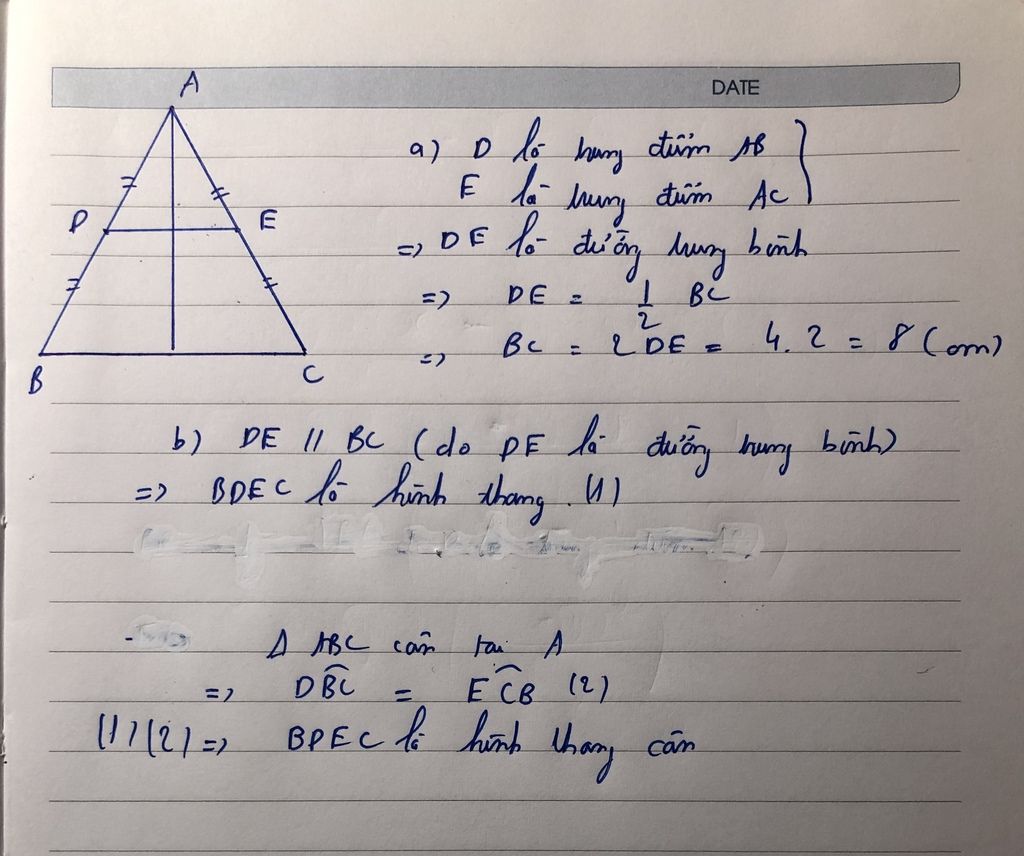 DATE
A
D
E
B
C
a) D là trung điểm AB
E là trung điểm AC
=> DE là đường trung bình
=> DE = 1/2 BC
=> BC = 2DE = 4.2 = 8 (cm)
b) DE // BC (do DE là đường trung bình)
=> BDEC là hình thang. (1)
Δ ABC cân tại A
=> DBC = ECB (2)
(1)(2) => BDEC là hình thang cân